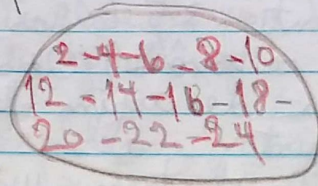 2-4-6-8-10
12-14-16-18-
20-22-24